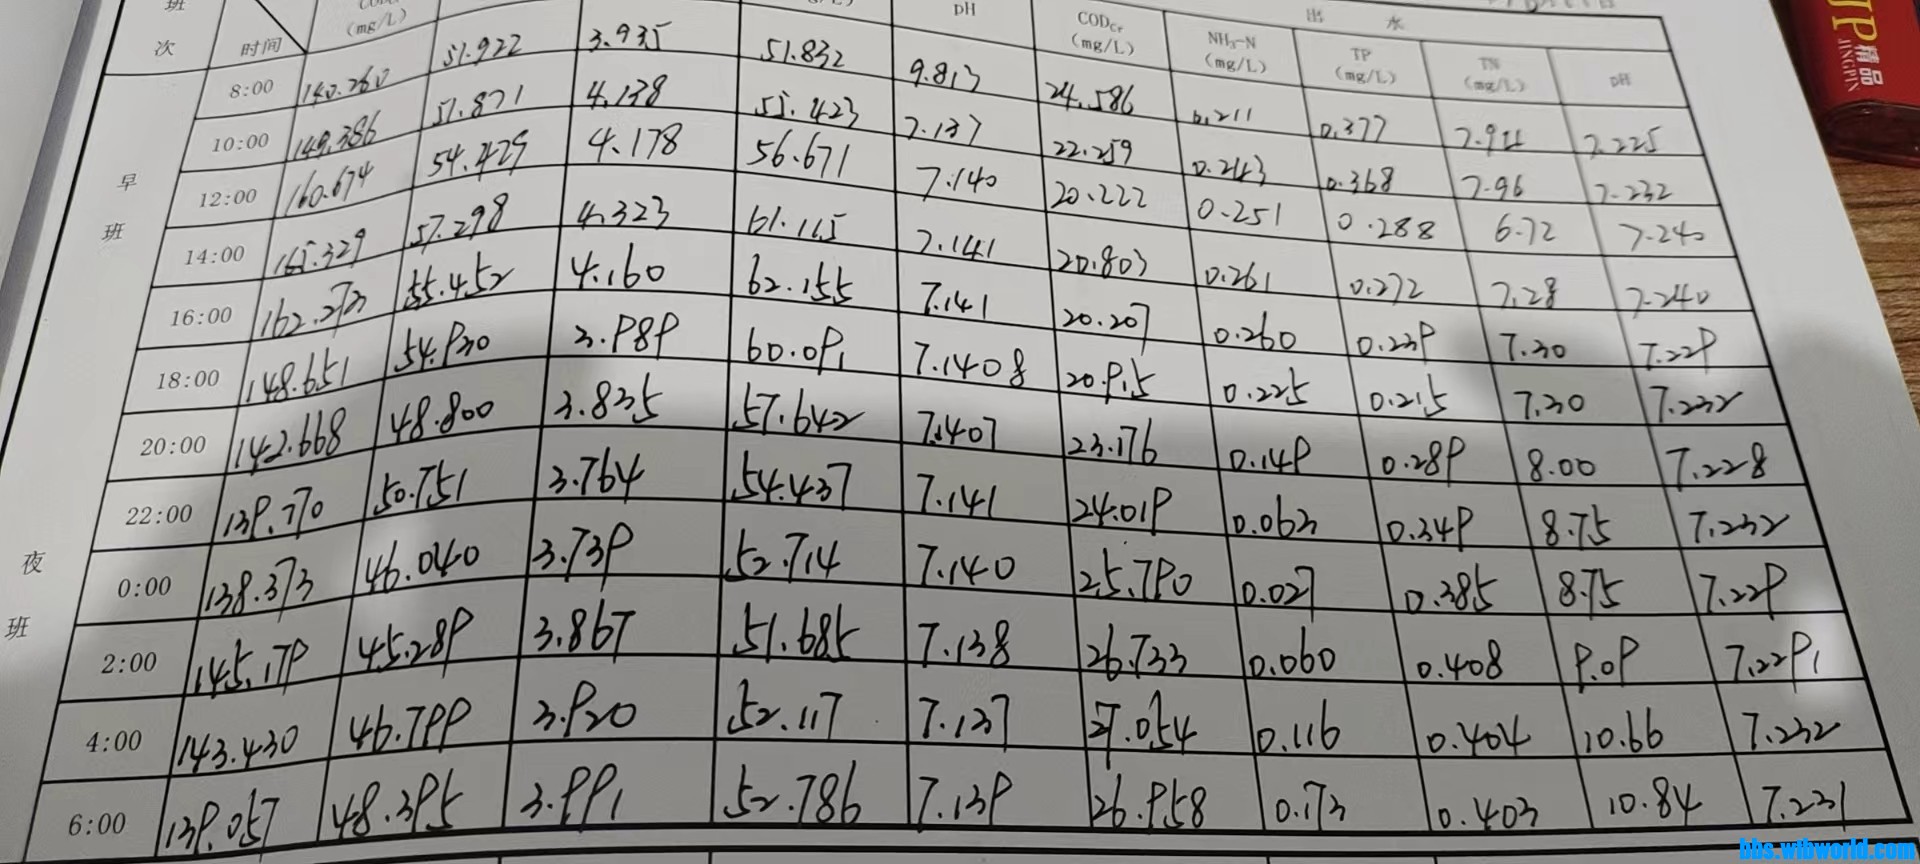 班次 时间 (mg/L) pH CODCr (mg/L) 出水 NH3-N (mg/L) TP (mg/L) TN (mg/L) pH
8:00 140.260 51.922 3.935 51.832 9.813 24.586 0.211 0.377 7.225
早班
10:00 149.386 57.871 4.138 55.423 7.137 22.259 0.243 0.368 7.96 7.232
12:00 160.674 54.429 4.178 56.671 7.140 20.222 0.251 0.288 6.72 7.240
14:00 165.329 57.298 4.323 61.115 7.141 20.803 0.261 0.272 7.28 7.240
16:00 162.273 55.452 4.160 62.155 7.141 20.207 0.260 0.239 7.30 7.229
18:00 148.651 54.930 3.989 60.091 7.1408 20.915 0.225 0.215 7.30 7.232
20:00 142.668 48.800 3.835 57.642 7.1407 23.176 0.149 0.289 8.00 7.228
22:00 139.770 50.751 3.764 54.437 7.141 24.019 0.063 0.349 8.75 7.232
夜班
0:00 138.373 46.040 3.739 52.714 7.140 25.790 0.027 0.385 8.75 7.229
2:00 145.179 45.289 3.867 51.685 7.138 26.733 0.060 0.408 9.09 7.2291
4:00 143.430 46.799 3.920 52.117 7.137 27.054 0.116 0.404 10.66 7.232
6:00 139.057 48.395 3.991 52.786 7.139 26.958 0.173 0.403 10.84 7.231
JP 精品
JINGPIN
bbs.wtbworld.com